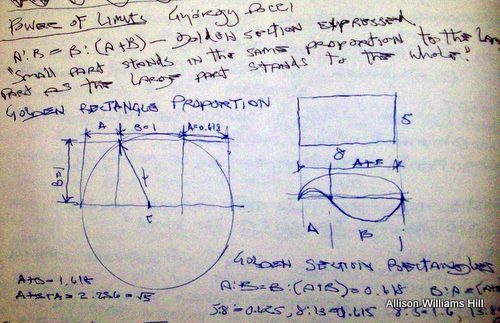 Power of Limits Gyorgy Doczi
A:B = B:(A+B) — golden section expressed
"Small part stands in the same proportion to the large
part as the large part stands to the whole."
Golden Rectangle Proportion
A B=1 A=0.618
B=1
r
5
8
A+B
A B
Golden Section Rectangles
A+B = 1.618
A+B+A = 2.236 = √5
A:B = B:(A+B) = 0.618 B:A = (A+
5:8 = 0.625, 8:13 = 0.615 8:5 = 1.6, 13:8
Allison Williams Hill